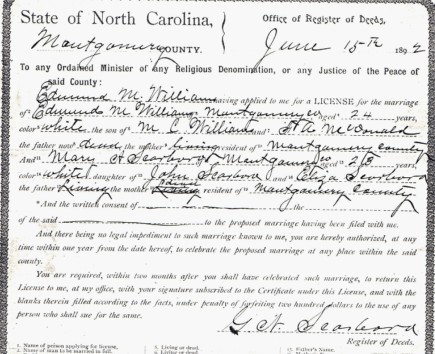 State of North Carolina,
Office of Register of Deeds,
Montgomery COUNTY.
June 15th 1892
To any Ordained Minister of any Religious Denomination, or any Justice of the Peace of
said County:
Edmund M. Williams having applied to me for a LICENSE for the marriage
of Edmund M Williams Montgomery co aged 24 years,
color white the son of M. C. Williams and McDonald
the father now dead the mother living resident of Montgomery County
And Mary A Scarboro of Montgomery co aged 23 years,
color white daughter of John Scarboro and Eliza Scarboro
the father living the mother resident of Montgomery County
And the written consent of the
of the said to the proposed marriage having been filed with me.
And there being no legal impediment to such marriage known to me, you are hereby authorized, at any
time within one year from the date hereof, to celebrate the proposed marriage at any place within the said
county.
You are required, within two months after you shall have celebrated such marriage, to return this
License to me, at my office, with your signature subscribed to the Certificate under this License, and with the
blanks therein filled according to the facts, under penalty of forfeiting two hundred dollars to the use of any
person who shall sue for the same.
G. A. Scarboro
Register of Deeds.
1. Name of person applying for license.
2. Name of man to be married in full.
6. Living or dead.
7. Father's Name.